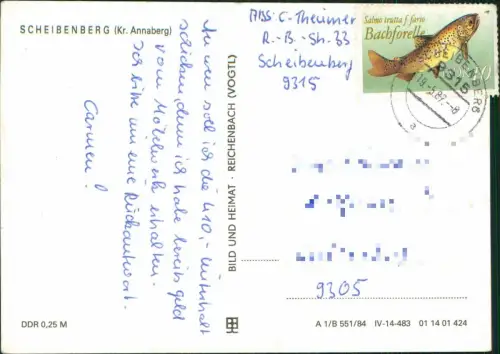 SCHEIBENBERG (Kr. Annaberg)
An wen soll ich die 410,- Unterhalt
schicken, denn ich habe bereits Geld
vom Möbelwerk erhalten.
Ich bitte um eine Rückantwort.
Carmen!
DDR 0,25 M
BILD UND HEIMAT · REICHENBACH (VOGTL)
ABS: C. Theumer
R.-B.-Str. 33
Scheibenberg
9315
Salmo trutta f. fario
Bachforelle
9305
A 1/B 551/84 IV-14-483 01 14 01 424